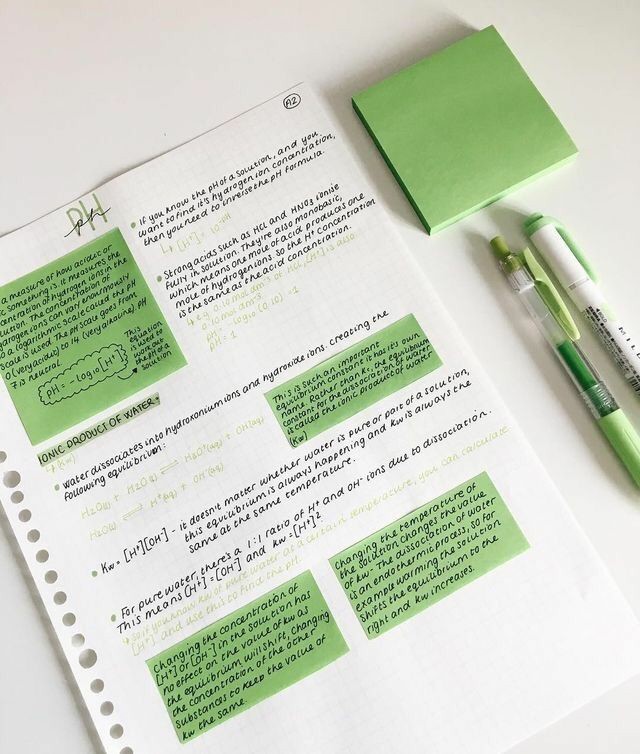 A2
PH
ph
a measure of how acidic or
something is. It measures the
concentration of hydrogen ions in the
solution. The concentration of
hydrogen ions can vary enormously
so a logarithmic scale called the pH
scale is used. The pH scale goes from
0 (very acidic) to 14 (very alkaline). pH
7 is neutral.
pH = -log10[H+]
This
equation
is used to
work out
the pH of a
solution
If you know the pH of a solution, and you
want to find it's hydrogen ion concentration,
then you need to inverse the pH formula.
↳ [H+] = 10^-pH
Strong acids such as HCl and HNO3 ionise
fully in solution. They're also monobasic,
which means one mole of acid produces one
mole of hydrogen ions. So the H+ concentration
is the same as the acid concentration.
↳ e.g. 0.10 mol dm-3 of HCl, [H+] is also
0.10 mol dm-3.
pH = -log10 (0.10) = 1
pH = 1
IONIC PRODUCT OF WATER.
↳ (Kw)
Water dissociates into hydroxonium ions and hydroxide ions creating the
following equilibrium:
H2O(l) + H2O(l) ⇌ H3O+(aq) + OH-(aq)
H2O(l) ⇌ H+(aq) + OH-(aq)
This is such an important
equilibrium constant it has it's own
name. Rather than Kc, the equilibrium
constant for the dissociation of water
is called the ionic product of water
(Kw)
Kw = [H+][OH-] - it doesn't matter whether water is pure or part of a solution,
this equilibrium is always happening and Kw is always the
same at the same temperature.
For pure water, there's a 1:1 ratio of H+ and OH- ions due to dissociation.
This means [H+] = [OH-] and Kw = [H+]2
↳ so if you know Kw of pure water at a certain temperature, you can calculate
[H+] and use this to find the pH.
Changing the concentration of
[H+] or [OH-] in the solution has
no effect on the value of Kw as
the equilibrium will shift, changing
the concentration of the other
substances to keep the value of
Kw the same.
Changing the temperature of
the solution changes the value
of Kw. The dissociation of water
is an endothermic process, so for
example warming the solution
shifts the equilibrium to the
right and Kw increases.